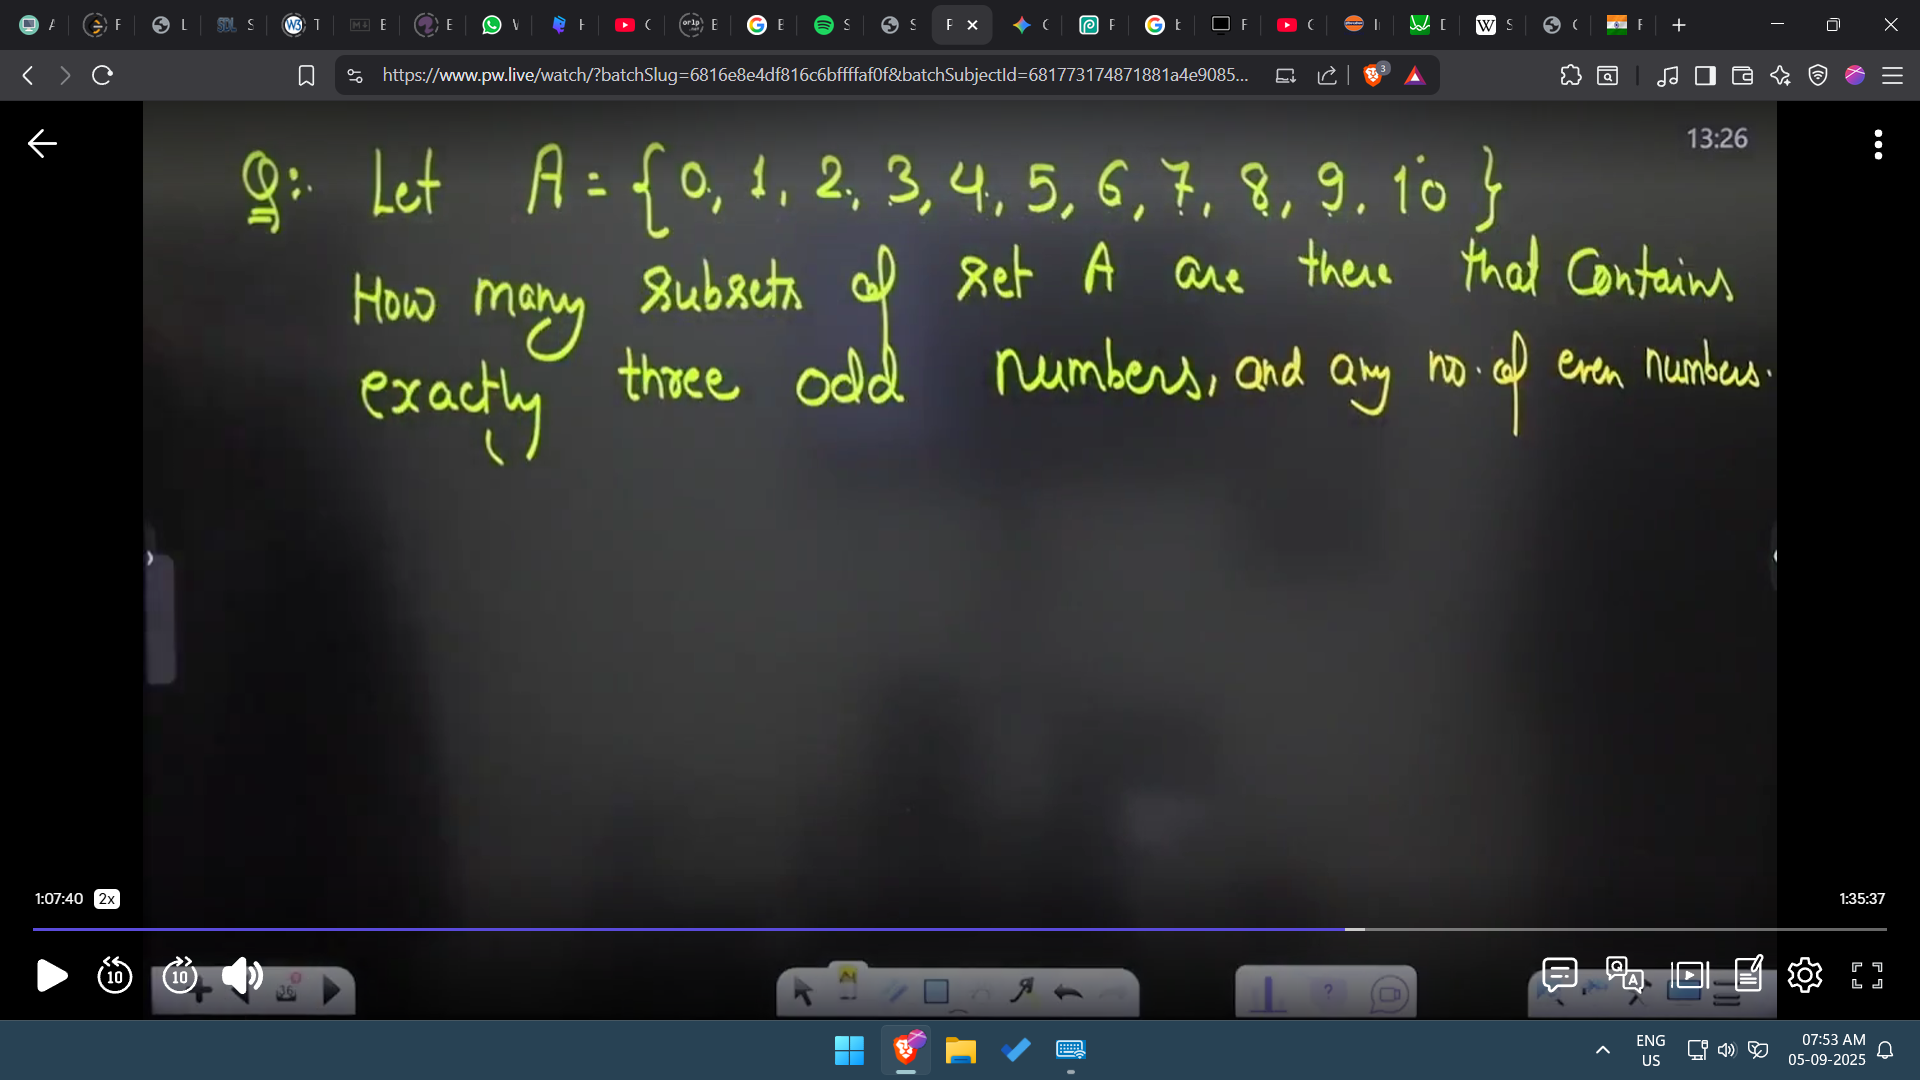 https://www.pw.live/watch/?batchSlug=6816e8e4df816c6bffffaf0f&batchSubjectId=681773174871881a4e9085...
3
13:26
Q:. Let A = { 0, 1, 2, 3, 4, 5, 6, 7, 8, 9, 10 }
How many subsets of set A are there that Contains
exactly three odd numbers, and any no. of even numbers.
1:07:40 2x
1:35:37
10 10
36
ENG
US
07:53 AM
05-09-2025